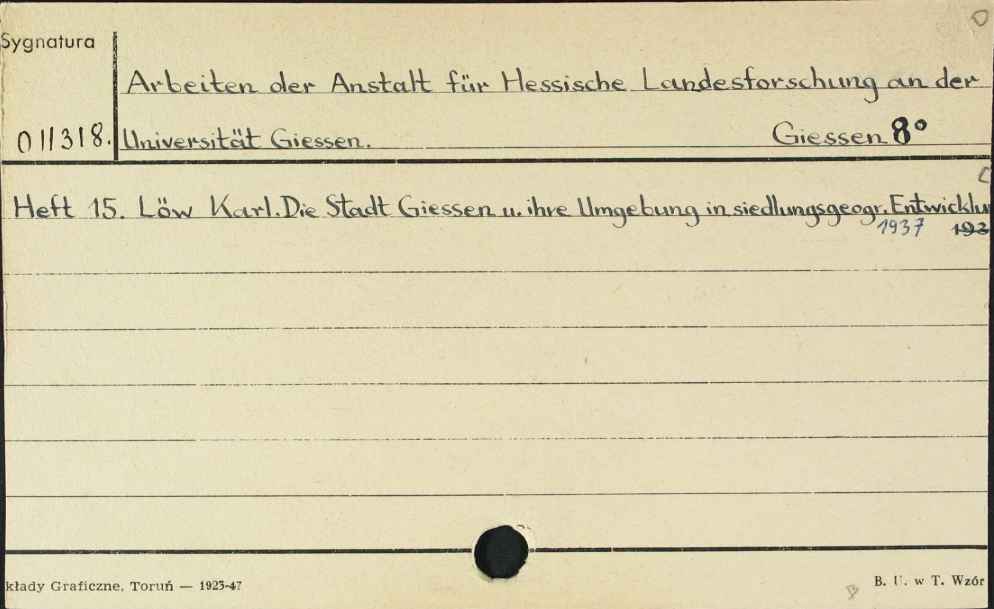 Sygnatura
Arbeiten der Anstalt für Hessische Landesforschung an der
011318. Universität Giessen. Giessen 8°
Heft 15. Löw Karl. Die Stadt Giessen u. ihre Umgebung in siedlungsgeogr. Entwicklu
1937 193
kłady Graficzne, Toruń — 1923-47
B. U. w T. Wzór